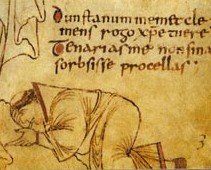 Dunstanum memet cle
mens rogo xp̄e tuere
Tenarias me non sinas
sorbsisse procellas